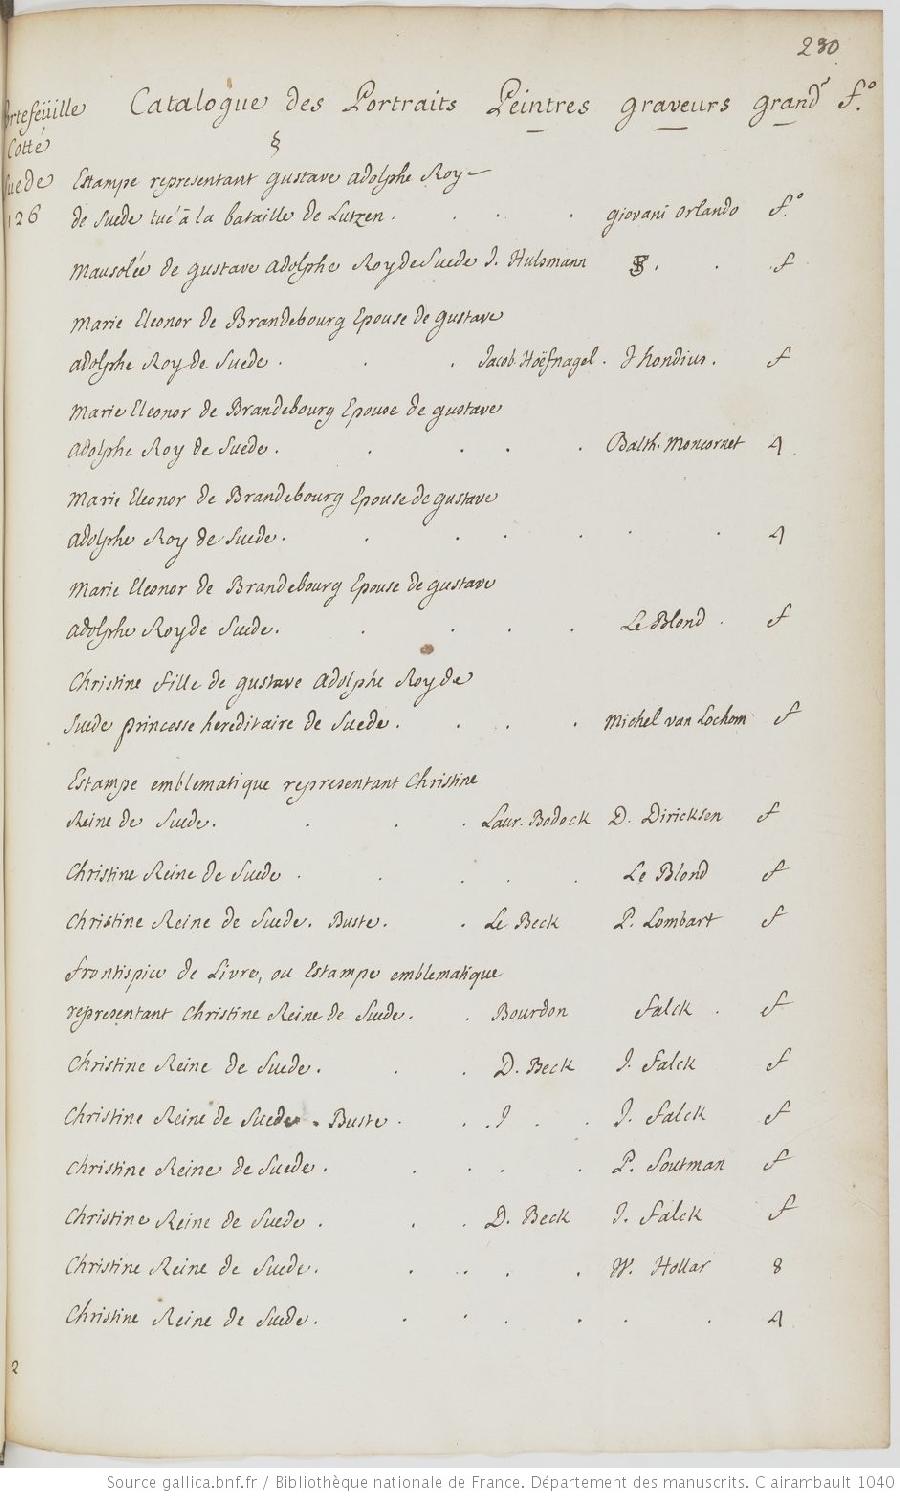 230
Portefeüille Catalogue des Portraits Peintres graveurs grandr f.o
Cotté
Suede
126
§
Estampe representant gustave adolphe Roy
de Suede tué a la bataille de Lutzen . . . . giovani orlando f.o
Mausolée de gustave adolphe Roy de Suede J. Hulsmann . . f
Marie Eleonor de Brandebourg Epouse de gustave
adolphe Roy de Suede . . . Jacob Hoëfnagel . J hondius . f
Marie Eleonor de Brandebourg Epouse de gustave
adolphe Roy de Suede . . . . . Balth. Moncornet 4
Marie Eleonor de Brandebourg Epouse de gustave
adolphe Roy de Suede . . . . . . . 4
Marie Eleonor de Brandebourg Epouse de gustave
adolphe Roy de Suede . . . . . Le Blond . f
Christine fille de gustave adolphe Roy de
Suede princesse hereditaire de Suede . . . . Michel van Lochom f
Estampe emblematique representant Christine
Reine de Suede . . . . Laur. Bodock D. Diricksen f
Christine Reine de Suede . . . . . Le Blond f
Christine Reine de Suede . Buste . . Le Beck P. Lombart f
frontispice de Livre, ou Estampe emblematique
representant Christine Reine de Suede . . Bourdon Falck . f
Christine Reine de Suede . . . D. Beck J. Falck f
Christine Reine de Suede . Buste . . . J . . J. Falck f
Christine Reine de Suede . . . . . P. Soutman f
Christine Reine de Suede . . . D. Beck J. Falck f
Christine Reine de Suede . . . . . W. Hollar 8
Christine Reine de Suede . . . . . . . 4
2
Source gallica.bnf.fr / Bibliothèque nationale de France. Département des manuscrits. Clairambault 1040